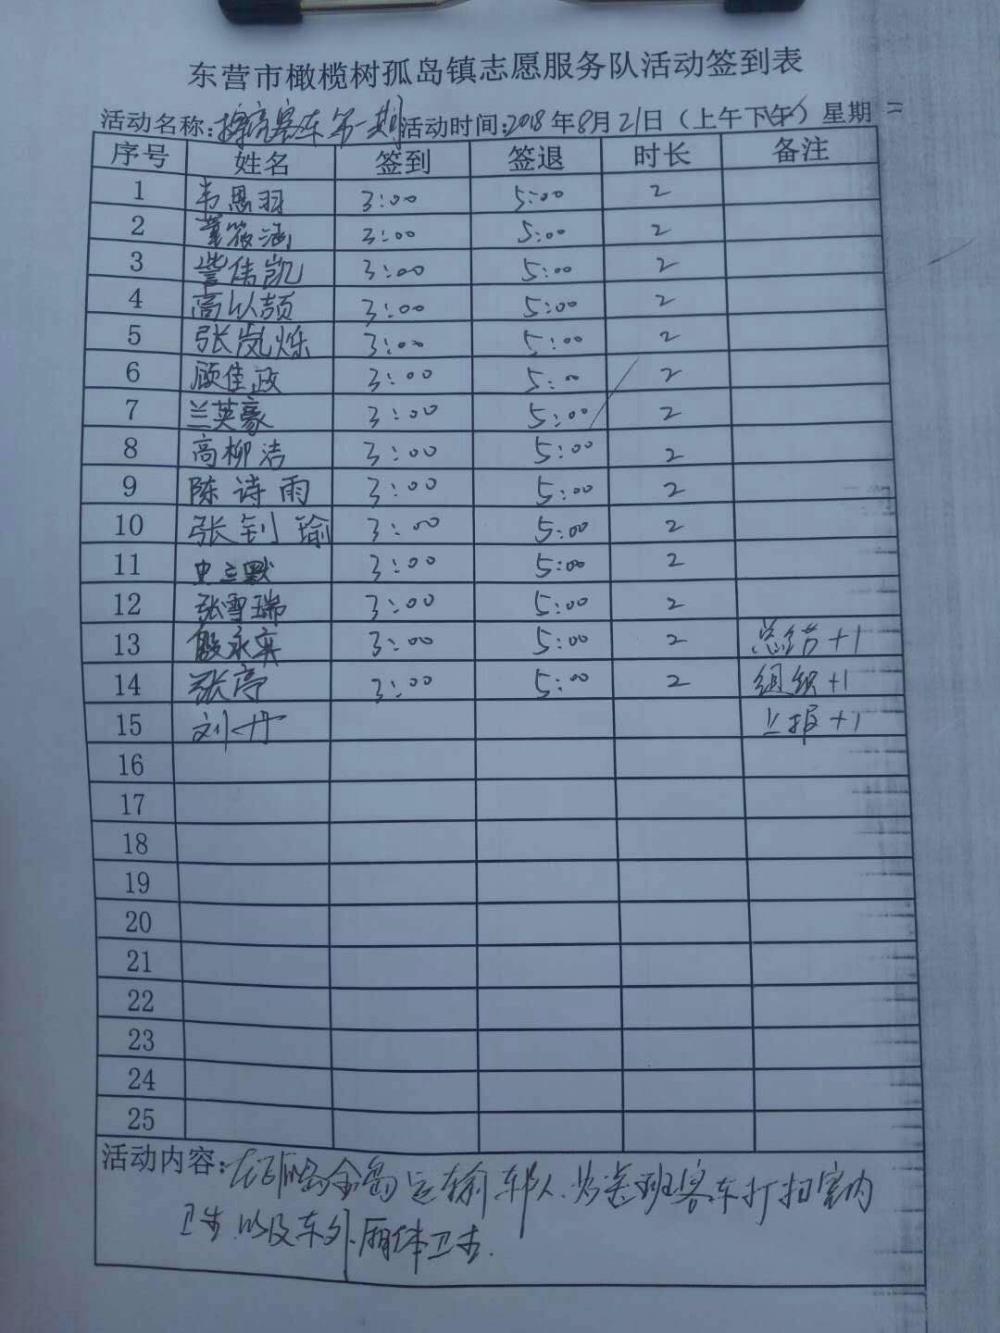 东营市橄榄树孤岛镇志愿服务队活动签到表
活动名称:擦亮客车第一期 活动时间:2018年8月21日（上午下午）星期二
序号 姓名 签到 签退 时长 备注
1 韦恩羽 3:00 5:00 2
2 董筱涵 3:00 5:00 2
3 訾伟凯 3:00 5:00 2
4 高以颉 3:00 5:00 2
5 张岚烁 3:00 5:00 2
6 顾佳政 3:00 5:00 2
7 兰英豪 3:00 5:00 2
8 高柳洁 3:00 5:00 2
9 陈诗雨 3:00 5:00 2
10 张钊瑜 3:00 5:00 2
11 史立默 3:00 5:00 2
12 张雪瑞 3:00 5:00 2
13 殷永实 3:00 5:00 2 总结+1
14 张亭 3:00 5:00 2 组织+1
15 刘丹 上报+1
16
17
18
19
20
21
22
23
24
25
活动内容:在孤岛金岛运输车队.为送班客车打扫室内
卫生.以及车外.厢体卫生.